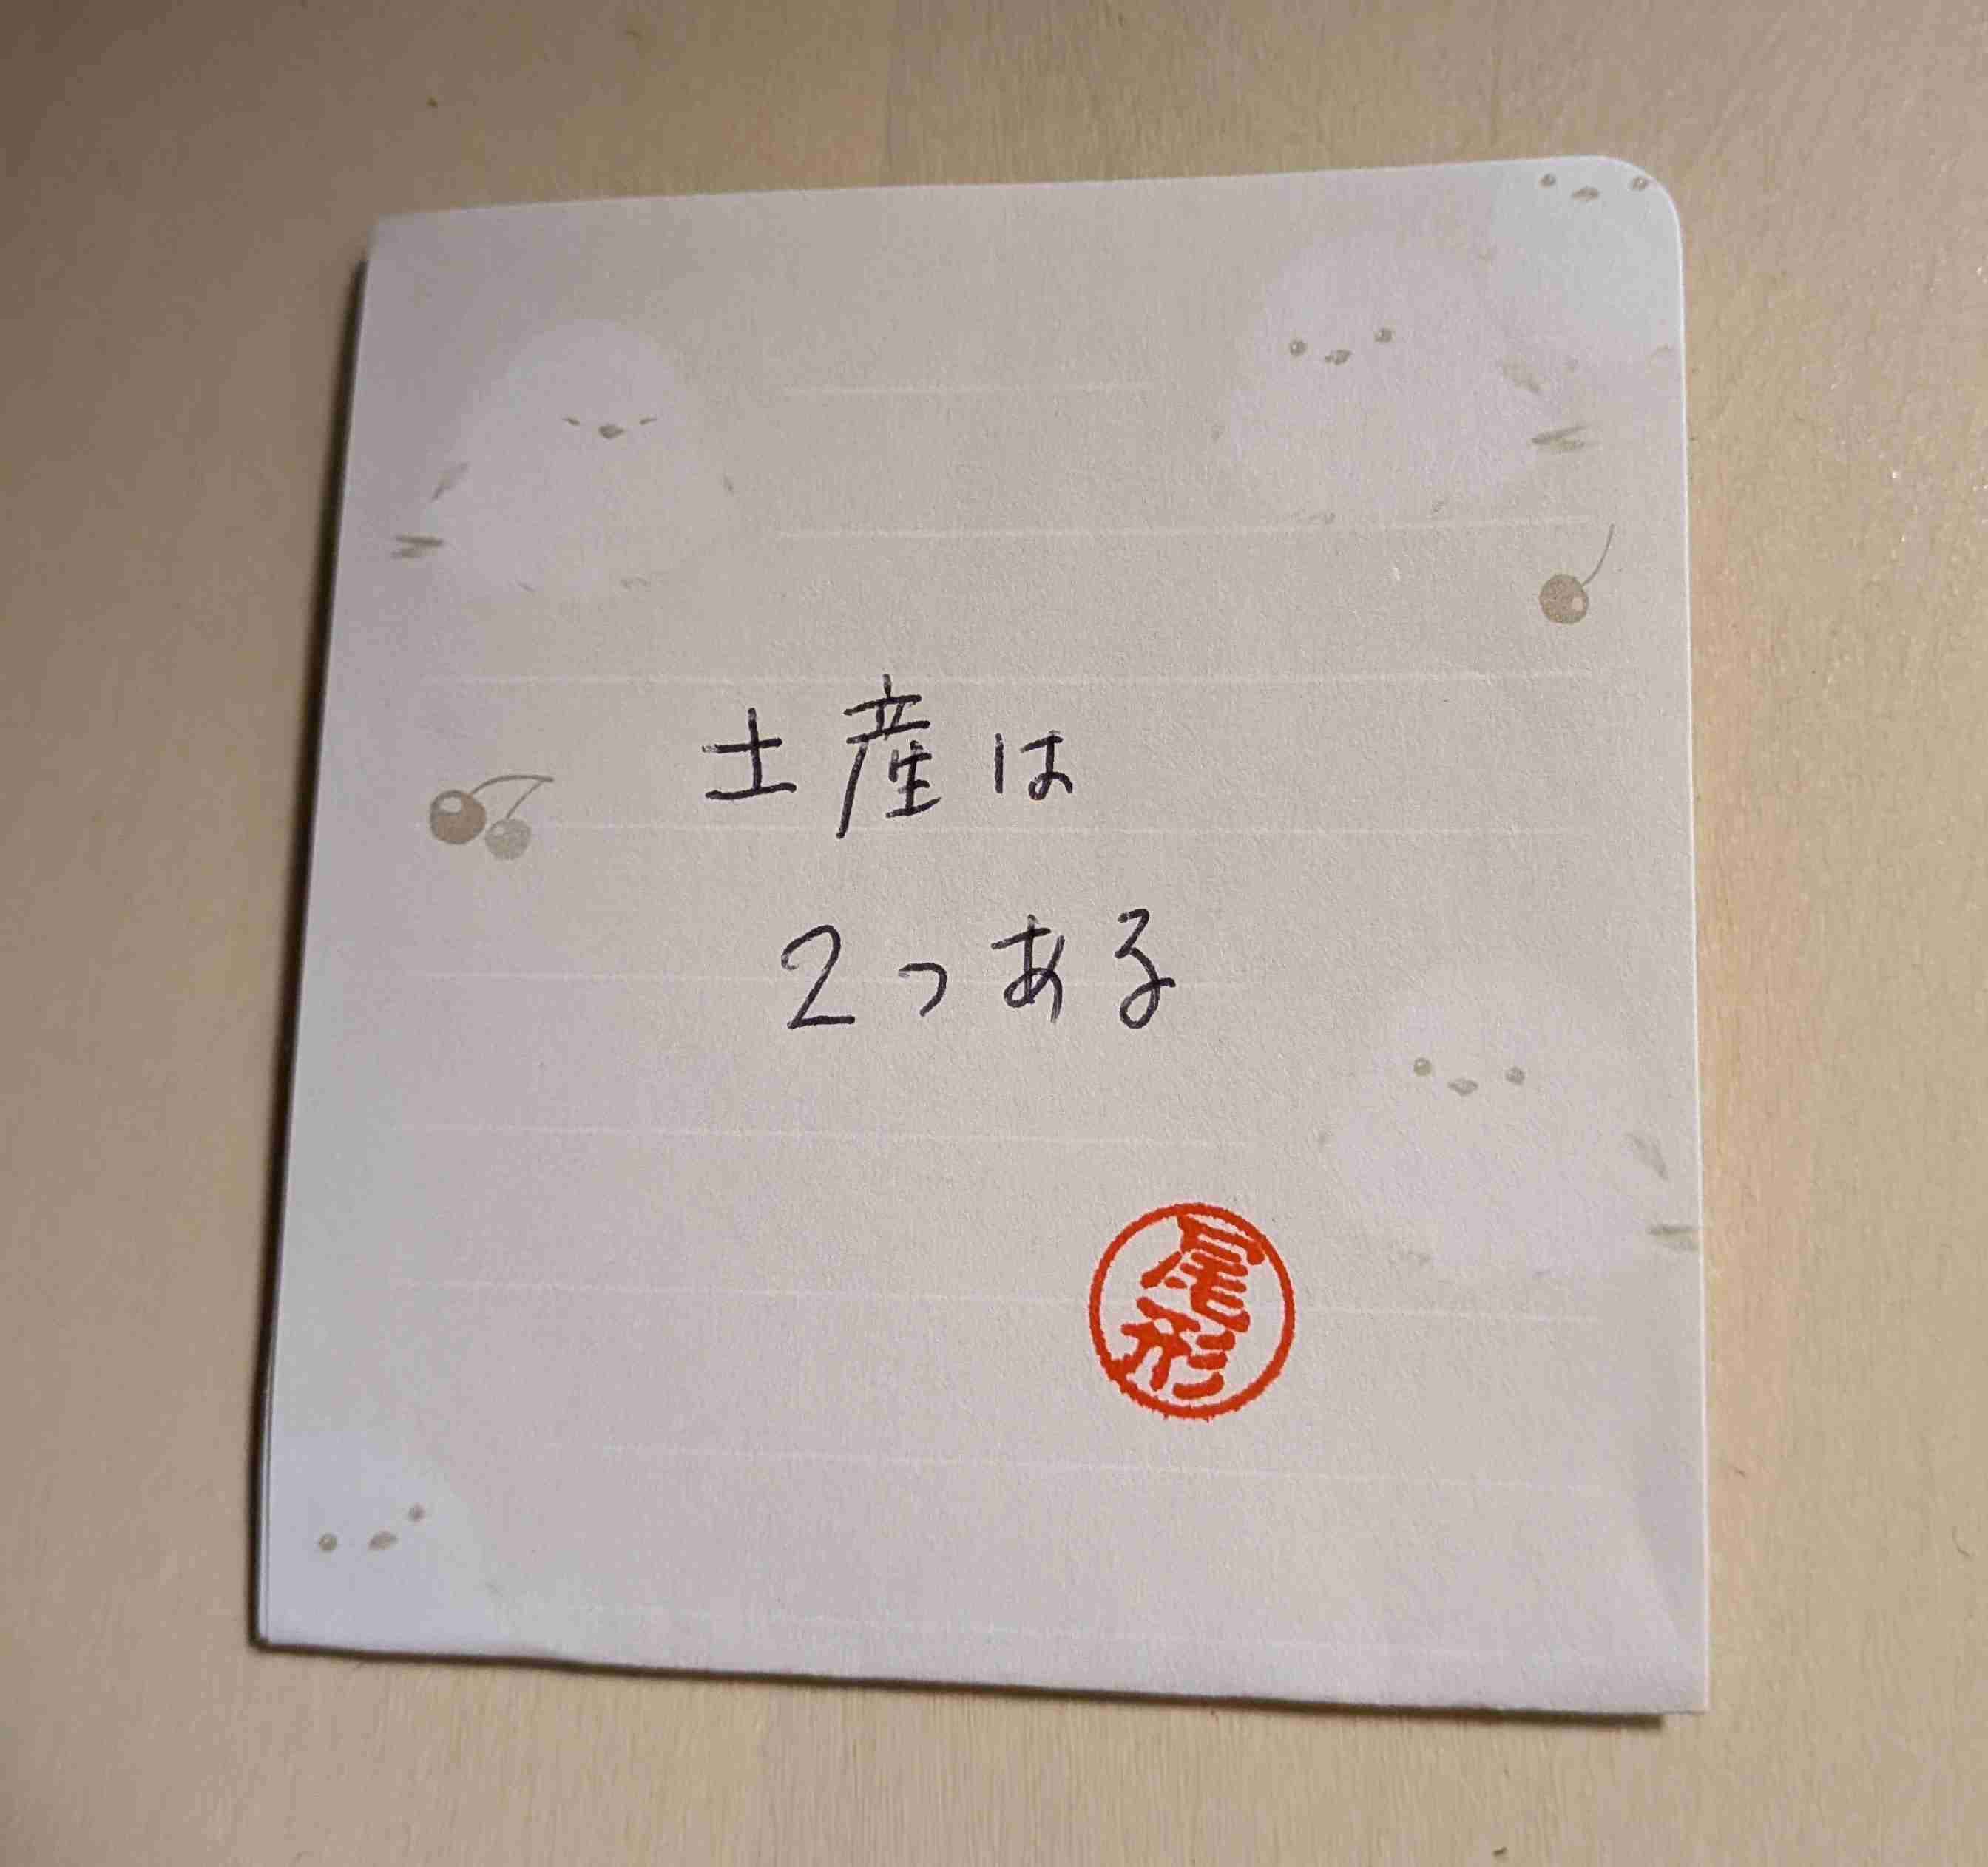 土産は
2つある
尾形